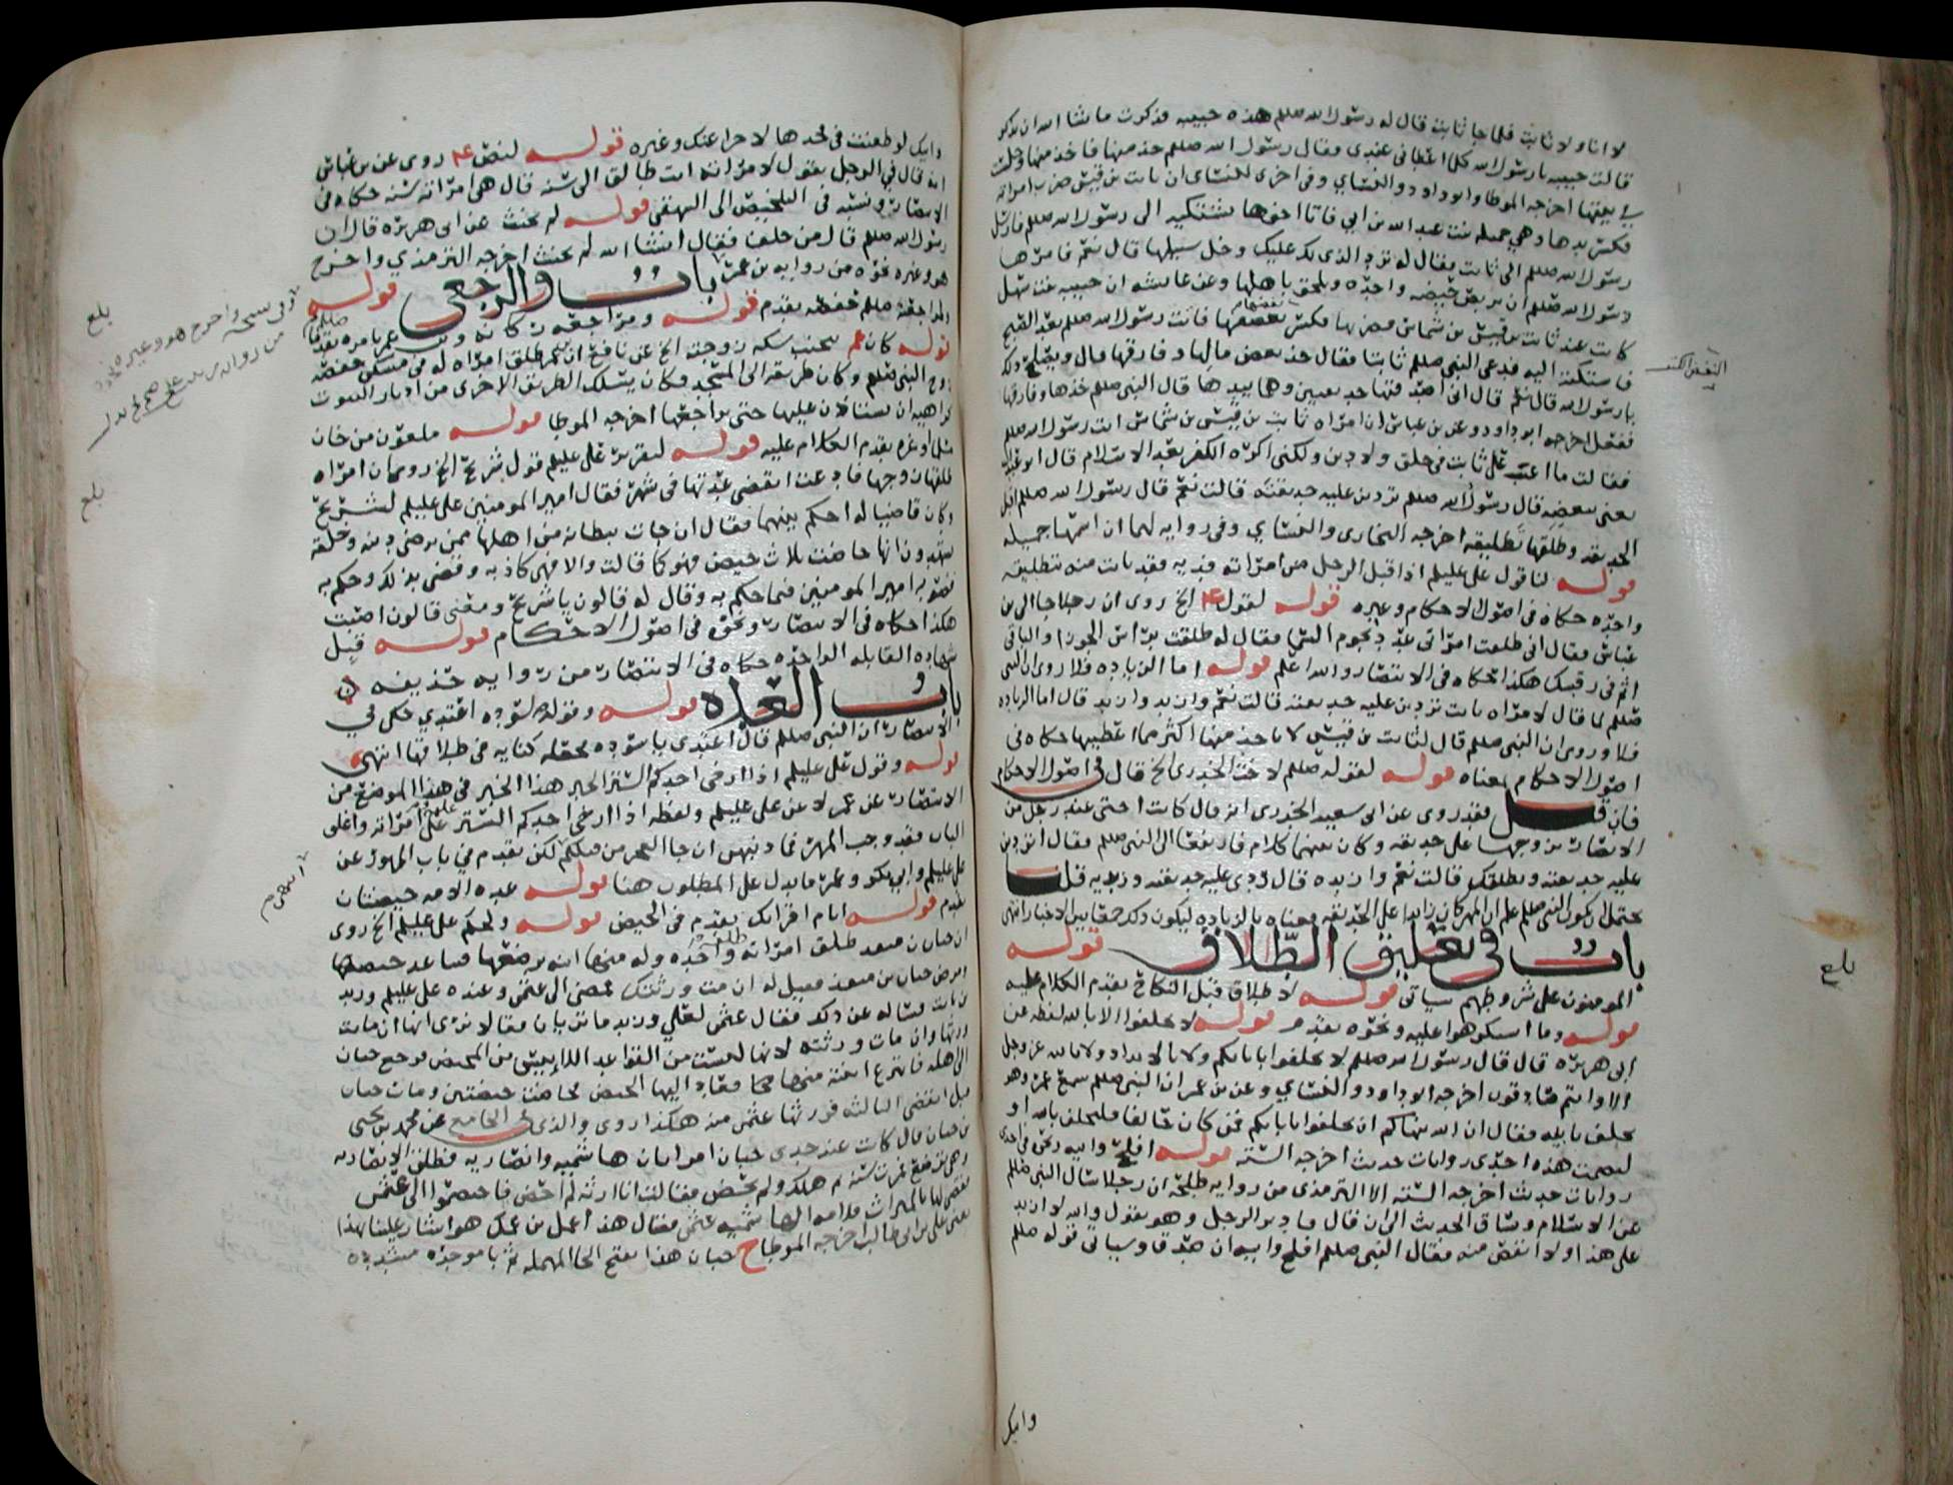 لا انا ولا ثابت فلما جا ثابت قال له رسول الله صلعم هذه حبيبه فذكرت ما شا الله ان تذكر
قالت حبيبه يا رسول الله كلما اعطاني عندي فقال رسول الله صلعم خذ منها فاخذ منها وجلست
في بيتها اخرجه الموطا وابو داود والنسائي وفي اخرى للنسائي ان ثابت بن قيس ضرب امراته
فكسر يدها وهي جميله بنت عبد الله بن ابي فاتا اخوها يشتكيه الى رسول الله صلعم فارسل
رسول الله صلعم الى ثابت فقال له خذ الذي لك عليك وخل سبيلها قال نعم فامرها
رسول الله صلعم ان تربص حيضه واحده وتلحق باهلها وعن عايشه ان حبيبه بنت سهل
كانت عند ثابت بن قيس بن شماس فضربها فكسر بعضها فاتت رسول الله صلعم بعد الصبح
فاشتكته اليه فدعى النبي صلعم ثابتا فقال خذ بعض مالها وفارقها قال ويصلح ذلك
يا رسول الله قال نعم قال اني اصدقتها حديقتين وهما بيدها قال النبي صلعم خذها وفارقها
ففعل اخرجه ابو داود وعن بن عباس ان امراه ثابت بن قيس بن شماس اتت رسول الله صلعم
فقالت ما اعتب على ثابت في خلق ولا دين ولكني اكره الكفر بعد الاسلام قال ابو عبد الله
يعني تبغضه قال رسول الله صلعم تردين عليه حديقته قالت نعم قال رسول الله صلعم اقبل
الحديقه وطلقها تطليقه اخرجه البخاري والنسائي وفي روايه لهما ان اسمها جميله
قوله لنا قول علي عليلم اذا قبل الرجل من امراته فديه فقد بانت منه بتطليقه
واحده حكاه في اصول الاحكام وغيره قوله لقول ع الخ روى ان رجلا جا الى بن
عباس فقال اني طلقت امراتي عدد نجوم السما فقال له طلقت براس الجوزا والباقي
اثم في رقبتك هكذا حكاه في الانتصار والله اعلم قوله اما الزياده فلا روى ان النبي
صلعم لما قال لامراه ثابت تردين عليه حديقته قالت نعم وازيد وازيد قال اما الزياده
فلا وروى ان النبي صلعم قال لثابت بن قيس لا ياخذ منها اكثر مما اعطيها حكاه في
اصول الاحكام بمعناه قوله لقوله صلعم لاخت الخدري الخ قال في اصول الاحكام
فان قيل فقد روى عن ابي سعيد الخدري انه قال كانت اختي عند رجل من
الانصار تزوجها على حديقه وكان بينهما كلام فارتفعا الى النبي صلعم فقال اتردين
عليه حديقته ويطلقك قالت نعم وازيده قال ردي عليه حديقته وزيديه قلنا
يحتمل ان يكون النبي صلعم علم ان المهر كان زايدا على الحديقه فعناه بالزياده ليكون ذلك جمعا بين الاخبار انتهى
باب في تعليق الطلاق قوله
المومنون على شروطهم سياتي قوله لا طلاق قبل النكاح تقدم الكلام عليه
قوله وما استكرهوا عليه ونحوه تقدم قوله لا تحلفوا الا بالله لفظه عن
ابي هريره قال قال رسول الله صلعم لا تحلفوا بابايكم ولا بالانداد ولا بالله عز وجل
الا وانتم صادقون اخرجه ابو داود والنسائي وعن بن عمر ان النبي صلعم سمع عمر وهو
يحلف بابيه فقال ان الله ينهاكم ان تحلفوا بابايكم فمن كان حالفا فليحلف بالله او
ليصمت هذه احدى روايات حديث اخرجه الستة قوله افلح وابيه وقع في احدى
روايات حديث اخرجه الستة الا الترمذي من روايه طلحه ان رجلا سال النبي صلعم
عن الاسلام وساق الحديث الى ان قال فادبر الرجل وهو يقول والله لا ازيد
على هذا ولا انقص منه فقال النبي صلعم افلح وابيه ان صدق وسياتي قوله صلعم
وابيك
بلغ
وابيك لو طعنت في فخذها لاجزا عنك وغيره قوله لنص ع روى عن بن عباس
انه قال في الرجل يقول لامراته انت طالق الى سنه قال هي امراته سنه حكاه في
الانتصار ونسبه في التلخيص الى البيهقي قوله لم يحنث عن ابي هريره قال ان
رسول الله صلعم قال من حلف فقال ان شا الله لم يحنث اخرجه الترمذي واخرج
هو وغيره نحوه من روايه بن عمر باب والرجعي قوله
لمراجعة صلعم حفصه تقدم قوله ومراجعه ركانه وبن عمر بامره تقدما
قوله كان عمر يتجنب سكه زوجته الخ عن نافع ان بن عمر طلق امراه له في مسكن حفصه
زوج النبي صلعم وكان طريقه الى المسجد فكان يسلك الطريق الاخرى من ادبار البيوت
كراهيه ان يستاذن عليها حتى يراجعها اخرجه الموطا قوله ملعون من خان
مسلما وغره تقدم الكلام عليه قوله لتقرير علي عليلم قول شريح الخ روى ان امراه
طلقها زوجها فادعت انقضى عدتها في شهر فقال امير المومنين علي عليلم لشريح
وكان قاضيا له احكم بينهما فقال ان جات ببطانه من اهلها ممن يرضى دينه وخلقه
يشهدون انها حاضت ثلاث حيض فهو كما قالت والا فهي كاذبه وقضى بذلك وحكم به
فصوبه امير المومنين فيما حكم به وقال له قالون يا شريح ومعنى قالون اصبت
هكذا حكاه في الانتصار ونحوه في اصول الاحكام قوله قبل
شهاده القابله الواحده حكاه في الانتصار من روايه حذيفه
باب العده قوله وقوله لسوده اعتدي حكى في
الانتصار ان النبي صلعم قال اعتدي يا سوده فجعله كنايه في طلاقها انتهى
قوله وقول علي عليلم اذا ارخى احدكم الستر الخبر هذا الخبر في هذا الموضع من
الانتصار عن عمر لا عن علي عليلم ولفظه اذا ارخى احدكم الستر على امراته واغلق
الباب فقد وجب المهر فما ذنبهن ان جا العجز من قبلكم لكن تقدم في باب المهور عن
علي عليلم وابي بكر وعمر ما يدل على المطلوب هنا قوله عده الامه حيضتان
تقدم قوله ايام اقرايك تقدم في الحيض قوله ولحكم علي عليلم الخ روى
ان حبان بن منقذ طلق امراته طلقه واحده وله منها ابنه ترضعها فتباعد حيضها
ومرض حبان بن منقذ فقيل له ان مت ورثتك فمضى الى عثمن وعنده علي عليلم وزيد
بن ثابت فساله عن ذلك فقال عثمن لعلي وزيد ما تريان فقالا نرى انها ان ماتت
ورثها وان مات ورثته لانها ليست من القواعد اللائي يئسن من المحيض فرجع حبان
الى اهله فانتزع ابنته منها فعاد اليها الحيض فحاضت حيضتين ومات حبان
قبل انقضى الثالثه فورثها عثمن منه هكذا روى والذي في الجامع عن محمد بن يحيى
بن حبان قال كانت عند جدي حبان امراتان هاشميه وانصاريه فطلق الانصاريه
وهي ترضع فمرت سنه ثم هلك ولم تحض فقالت انا ارثه لم احض فاختصموا الى عثمن
فقضى لها بالميراث فلامت الهاشميه عثمن فقال هذا عمل بن عمك هو اشار علينا بهذا
يعني علي بن ابي طالب اخرجه الموطا ح حبان هذا بفتح الحا المهمله ثم با موحده مشدده
بلغ
بلغ